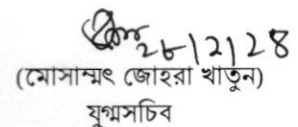 ২৮।২।২৪
(মোসাম্মৎ জোহরা খাতুন)
যুগ্মসচিব